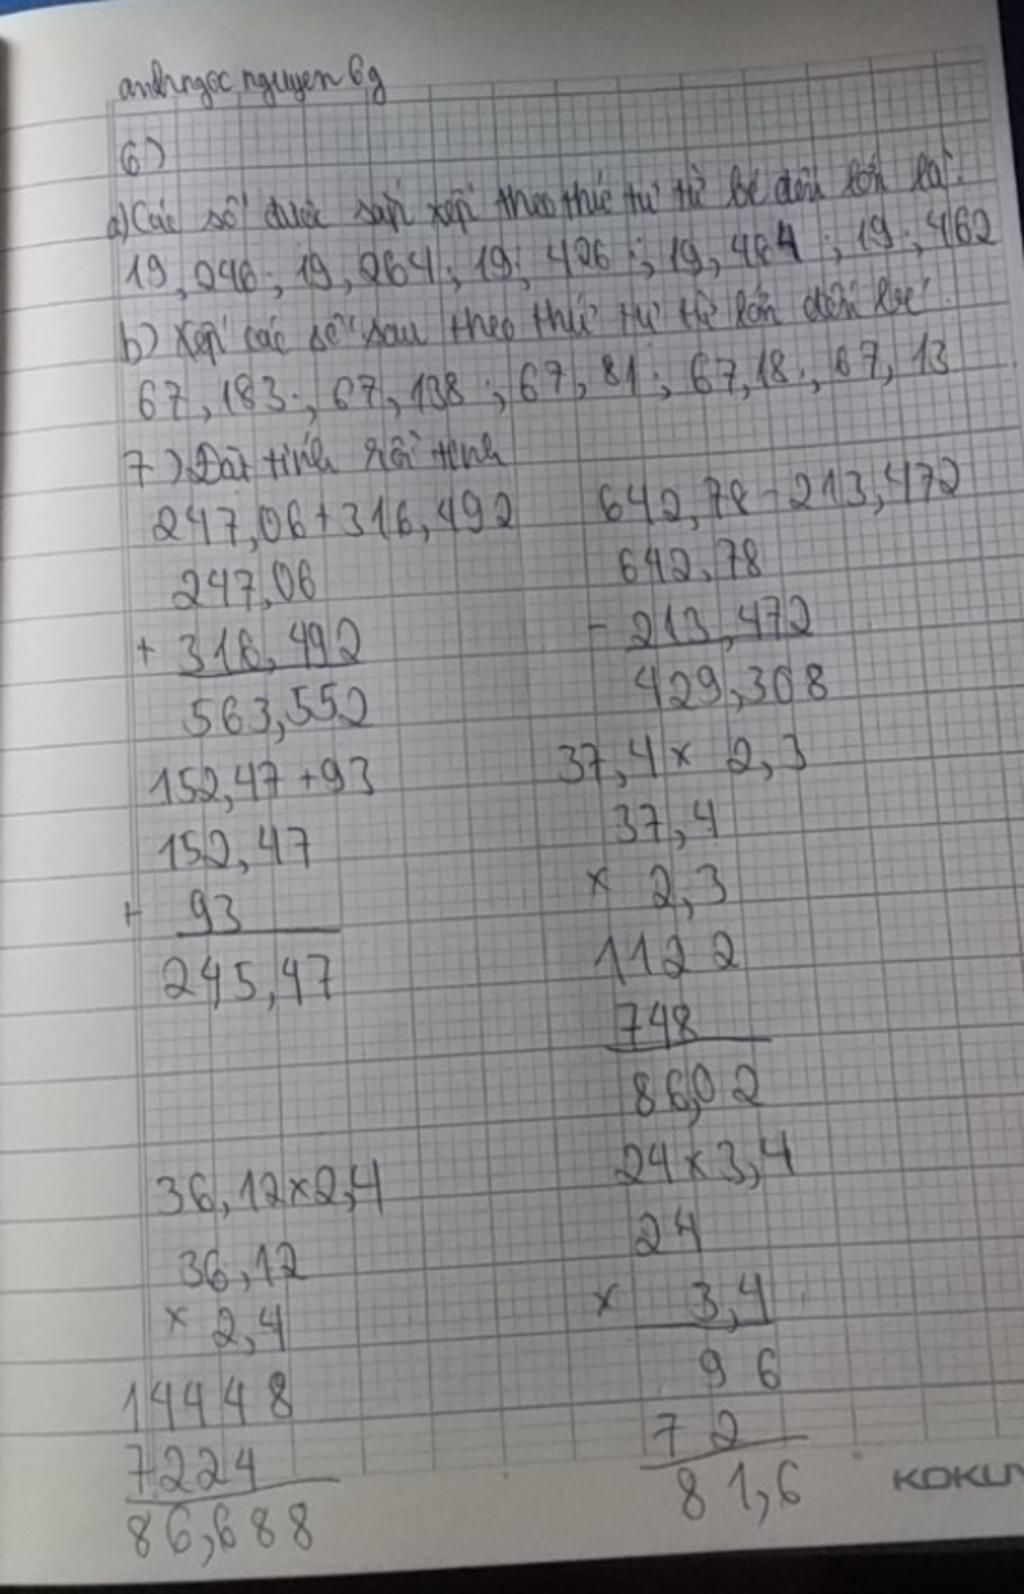 anhngoc nguyen 6g
6)
a) Các số được sắp xếp theo thứ tự từ bé đến lớn là:
19,246; 19,264; 19; 426; 19,464; 19; 462
b) Xếp các số sau theo thứ tự từ lớn đến bé
67,183; 67,138; 67,81; 67,18; 67,13
7) Đặt tính rồi tính
247,06+316,492 642,78-213,472
247,06 642,78
+ 316,492 - 213,472
563,552 429,308
152,47+93 37,4x 2,3
152,47 37,4
+ 93 x 2,3
245,47 1122
748
86,02
36,12x2,4 24x3,4
36,12 24
x 2,4 x 3,4
14448 96
7224 72
86,688 81,6